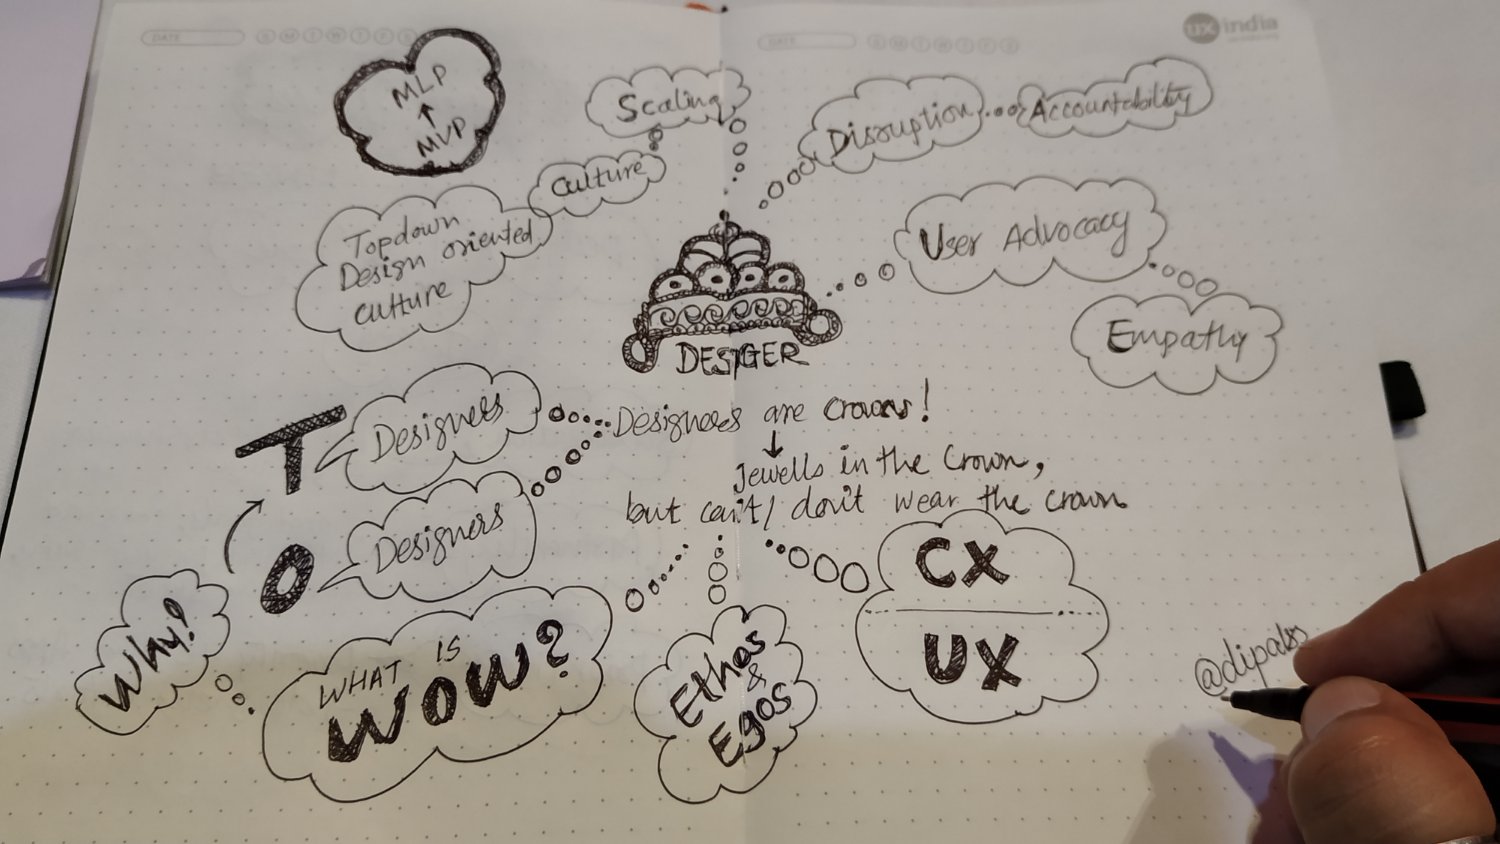 DATE
S M T W T F S
DATE
S M T W T F S
UX india
MLP
↑
MVP
Scaling
Culture
Topdown
Design oriented
culture
Disruption
Accountability
User Advocacy
Empathy
DESIGER
Designers are crowns!
↓
Jewells in the Crown,
but can't/ don't wear the crown
T
Designers
O
Designers
Why?
WHAT IS
WOW?
Ethos
&
Egos
CX
UX